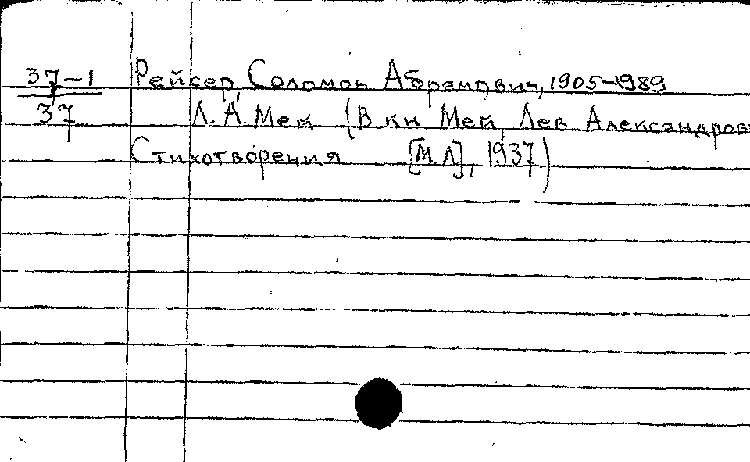 37-1 Рейсер, Соломон Абрамович, 1905-1989
37 Л. А. Мей (В кн Мей, Лев Александров
Стихотворения [М Л], 1937)